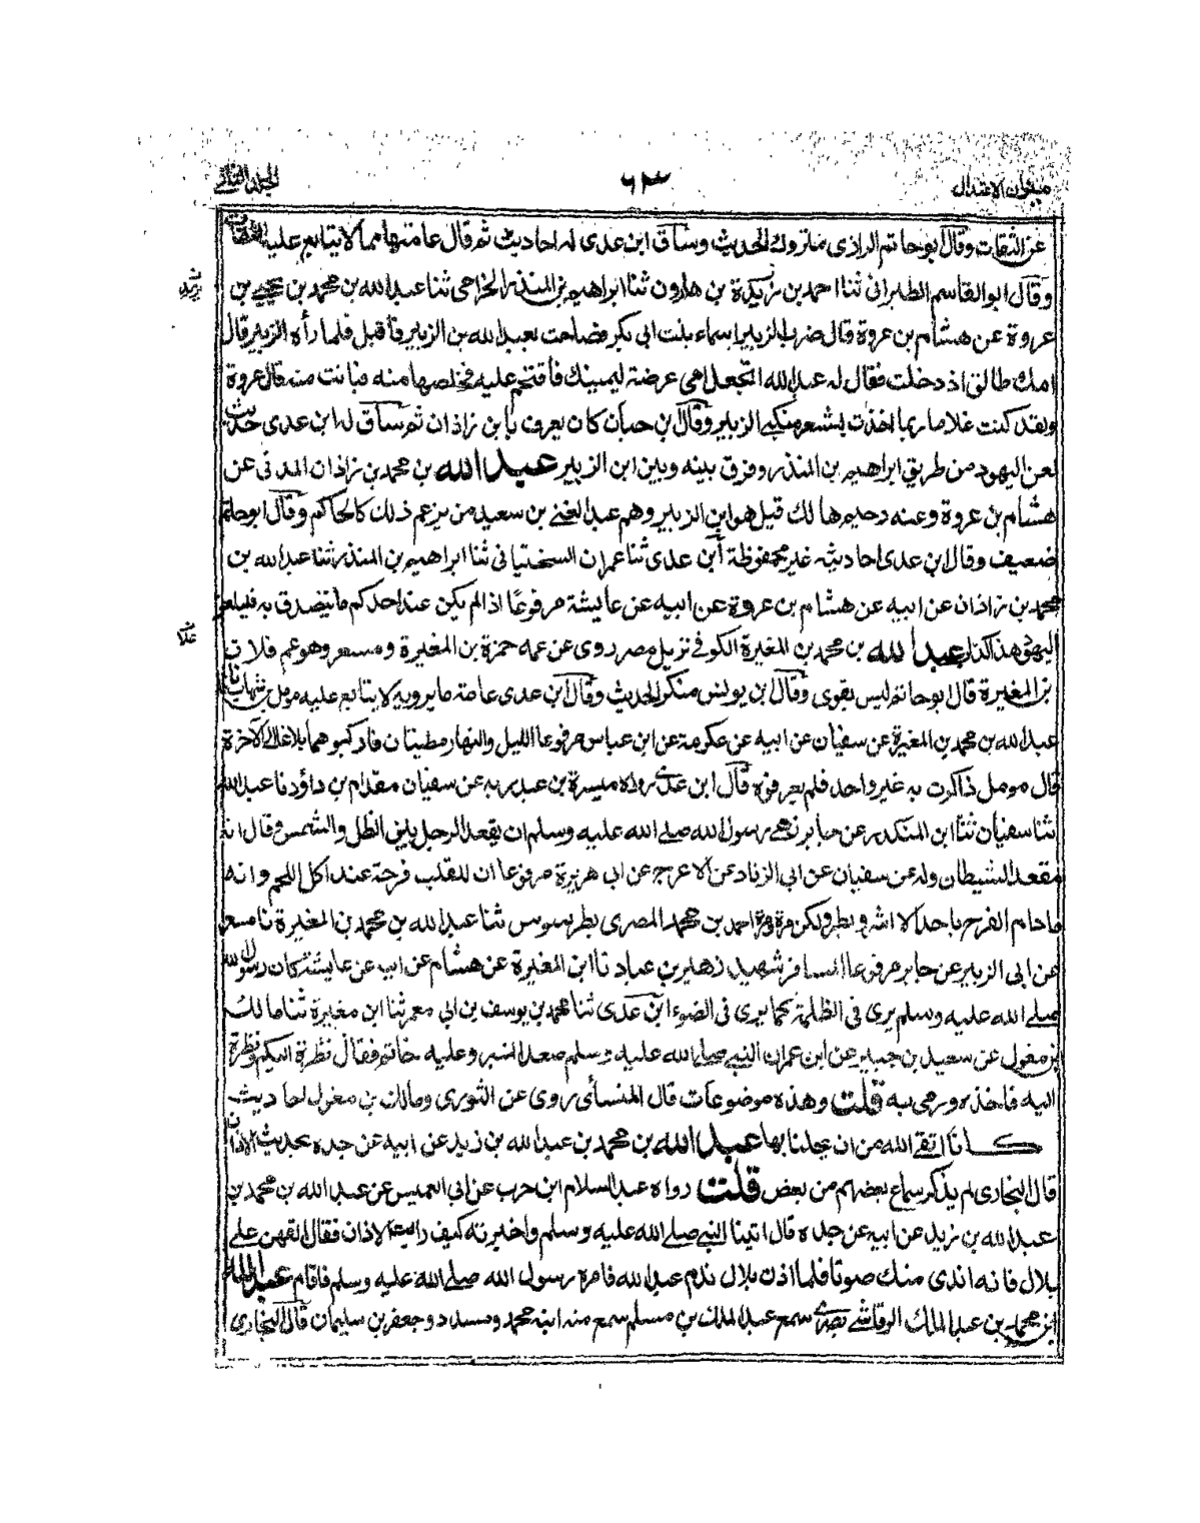 ميزان الاعتدال
٦٣
الجلد الثاني
عن الثقات وقال ابو حاتم الرازى متروك الحديث وساق ابن عدى له احاديث ثم قال عامتها مما لا يتابع عليه الثقات
وقال ابو القاسم الطبرانى ثنا احمد بن زيد بن هارون ثنا ابراهيم بن المنذر الخزامى ثنا عبد الله بن محمد بن يحيى بن
عروة عن هشام بن عروة قال ضرب الزبير اسماء بنت ابى بكر فصاحت بعبد الله بن الزبير فاقبل فلما رأه الزبير قال
امك طالق اذ دخلت فقال له عبد الله اتجعل امى عرضة ليمينك فاقتحم عليه فخلصها منه فبانت منه قال عروة
ولقد كنت غلاما ربما اخذت بشعر منكبى الزبير وقال بن حبان كان يعرف بابن زاذان ثم ساق له ابن عدى حديث
لعن اليهود من طريق ابراهيم بن المنذر وفرق بينه وبين ابن الزبير عبد الله بن محمد بن زاذان المدنى عن
هشام بن عروة وعنه دحيم هالك قيل هو ابن الزبير وهم عبد الغنى بن سعيد من يزعم ذلك كالحاكم وقال ابو حاتم
ضعيف وقال ابن عدى احاديثه غير محفوظة ابن عدى ثنا عمران السختيانى ثنا ابراهيم بن المنذر ثنا عبد الله بن
محمد بن زاذان عن ابيه عن هشام بن عروة عن ابيه عن عايشة مرفوعا اذا لم يكن عند احدكم ما يتصدق به فليلعن
اليهود هذا كذب عبد الله بن محمد بن المغيرة الكوفى نزيل مصر روى عن عمه حمزة بن المغيرة ومسعر وهو عم فلان
بن المغيرة قال ابو حاتم ليس بقوى وقال ابن يونس منكر الحديث وقال ابن عدى عامة ما يرويه لا يتابع عليه مومل بن شهاب نا
عبد الله بن محمد بن المغيرة عن سفيان عن ابيه عن عكرمة عن ابن عباس مرفوعا الليل والنهار مطيتان فاركبوهما بلاغا الى الآخرة
قال مومل ذاكرت به غير واحد فلم يعرفوه قال ابن عدى رواه ميسرة بن عبد ربه عن سفيان مقدام بن داؤد نا عبد الله
ثنا سفيان ثنا ابن المنكدر عن جابر نهى رسول الله صلى الله عليه وسلم ان يقعد الرجل بين الظل والشمس وقال انه
مقعد الشيطان وله عن سفيان عن ابى الزناد عن الاعرج عن ابى هريرة مرفوعا ان للقلب فرحة عند اكل اللحم وانه
ما دام الفرح باحد الا اشر وبطر ولكن مرة ومرة احمد بن محمد المصرى بطرسوس ثنا عبد الله بن محمد بن المغيرة نا مسعر
عن ابى الزبير عن جابر مرفوعا المسافر شهيد زهير بن عباد نا ابن المغيرة عن هشام عن ابيه عن عايشة كان رسول الله
صلى الله عليه وسلم يرى فى الظلمة كما يرى فى الضوء ابن عدى ثنا محمد بن يوسف بن ابى معمر ثنا ابن مغيرة ثنا مالك
بن مغول عن سعيد بن جبير عن ابن عمر ان النبى صلى الله عليه وسلم صعد المنبر وعليه خاتم فقال نظرة اليكم ونظرة
اليه فاخذه ورمى به قلت وهذه موضوعات قال النسائى روى عن الثورى ومالك بن مغول احاديث
كانا اتقى الله من ان يحدثا بها عبد الله بن محمد بن عبد الله بن زيد عن ابيه عن جده بحديث الاذان
قال البخارى لم يذكر سماع بعضهم من بعض قلت رواه عبد السلام ابن حرب عن ابى العميس عن عبد الله بن محمد بن
عبد الله بن زيد عن ابيه عن جده قال اتينا النبى صلى الله عليه وسلم واخبرته كيف رايت الاذان فقال القهن على
بلال فانه اندى منك صوتا فلما اذن بلال ندم عبد الله فامره رسول الله صلى الله عليه وسلم فاقام عبد الله
بن محمد بن عبد الملك الرقاشى بصرى سمع عبد الملك بن مسلم سمع منه ابنه محمد ومسدد وجعفر بن سليمان قال البخارى